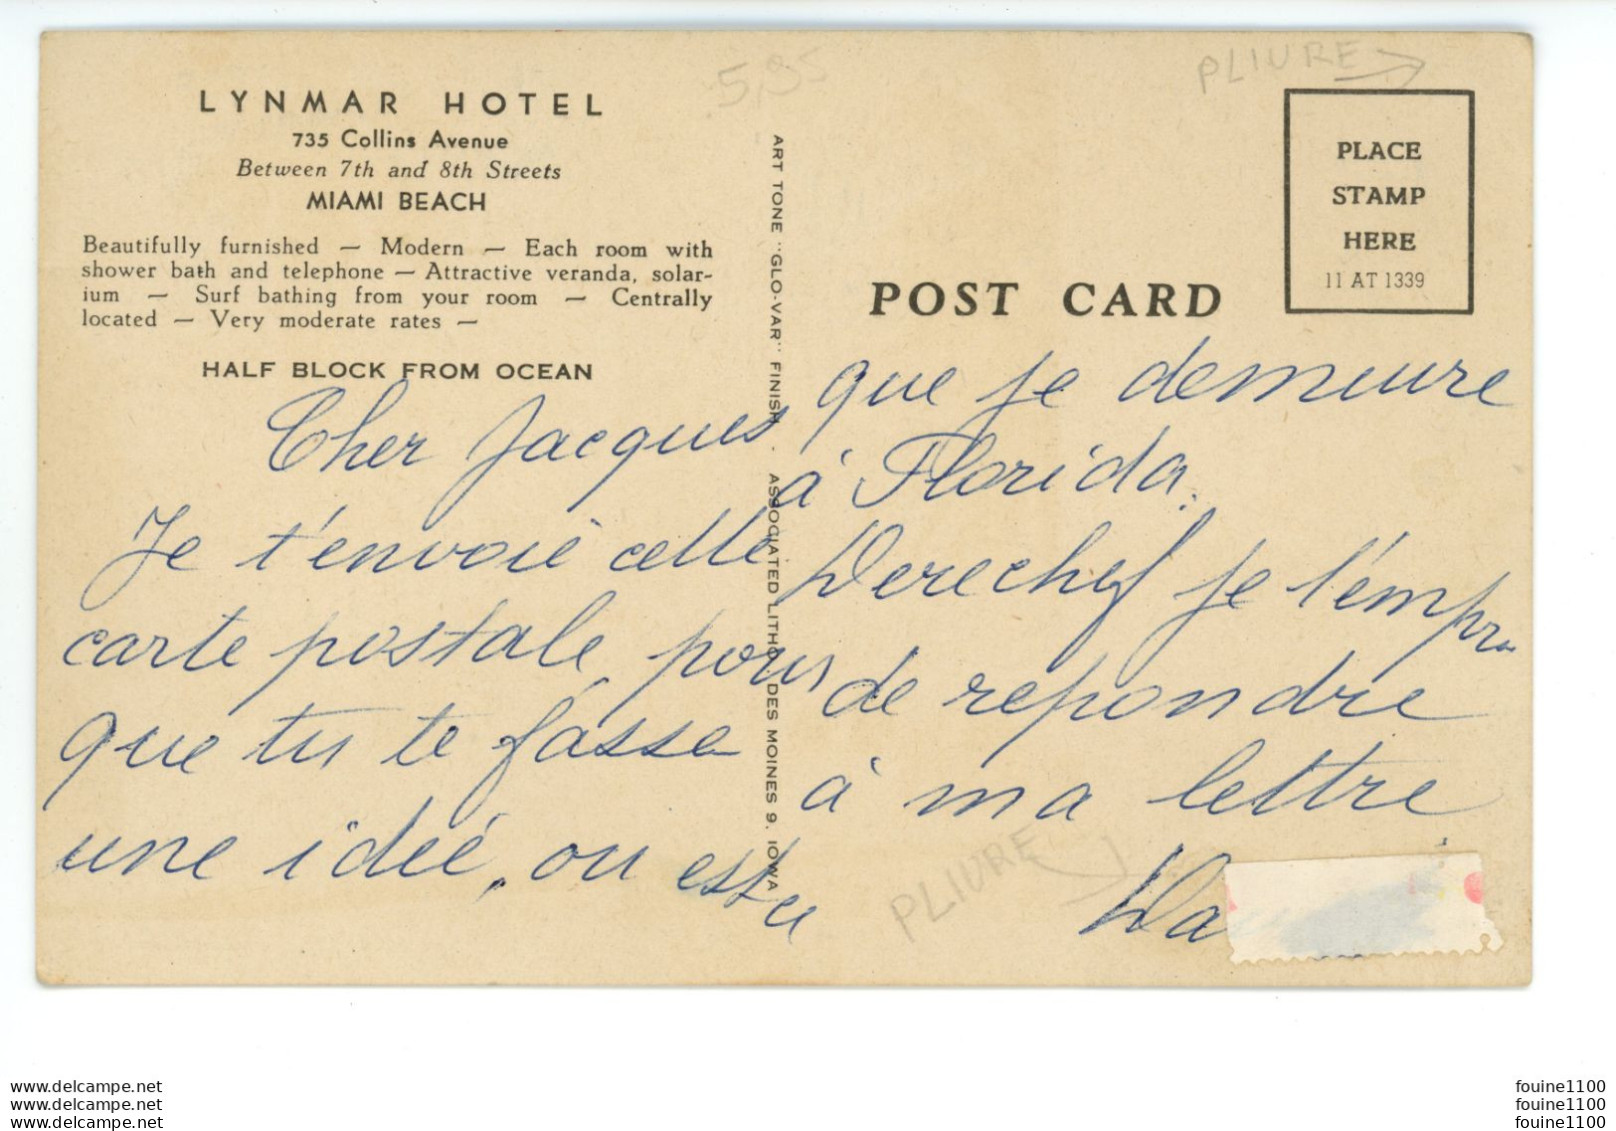 LYNMAR HOTEL
735 Collins Avenue
Between 7th and 8th Streets
MIAMI BEACH
Beautifully furnished — Modern — Each room with
shower bath and telephone — Attractive veranda, solar-
ium — Surf bathing from your room — Centrally
located — Very moderate rates —
HALF BLOCK FROM OCEAN
Cher Jacques
Je t'envoie cette
carte postale, pour
que tu te fasse
une idée, ou est ce
5,95
ART TONE "GLO-VAR" FINISH . ASSOCIATED LITHO. DES MOINES 9. IOWA
PLIURE
PLACE
STAMP
HERE
11 AT 1339
POST CARD
que je demeure
à Florida.
Derechef je t'empri
de repondre
à ma lettre
PLIURE
Da
www.delcampe.net
www.delcampe.net
www.delcampe.net
fouine1100
fouine1100
fouine1100